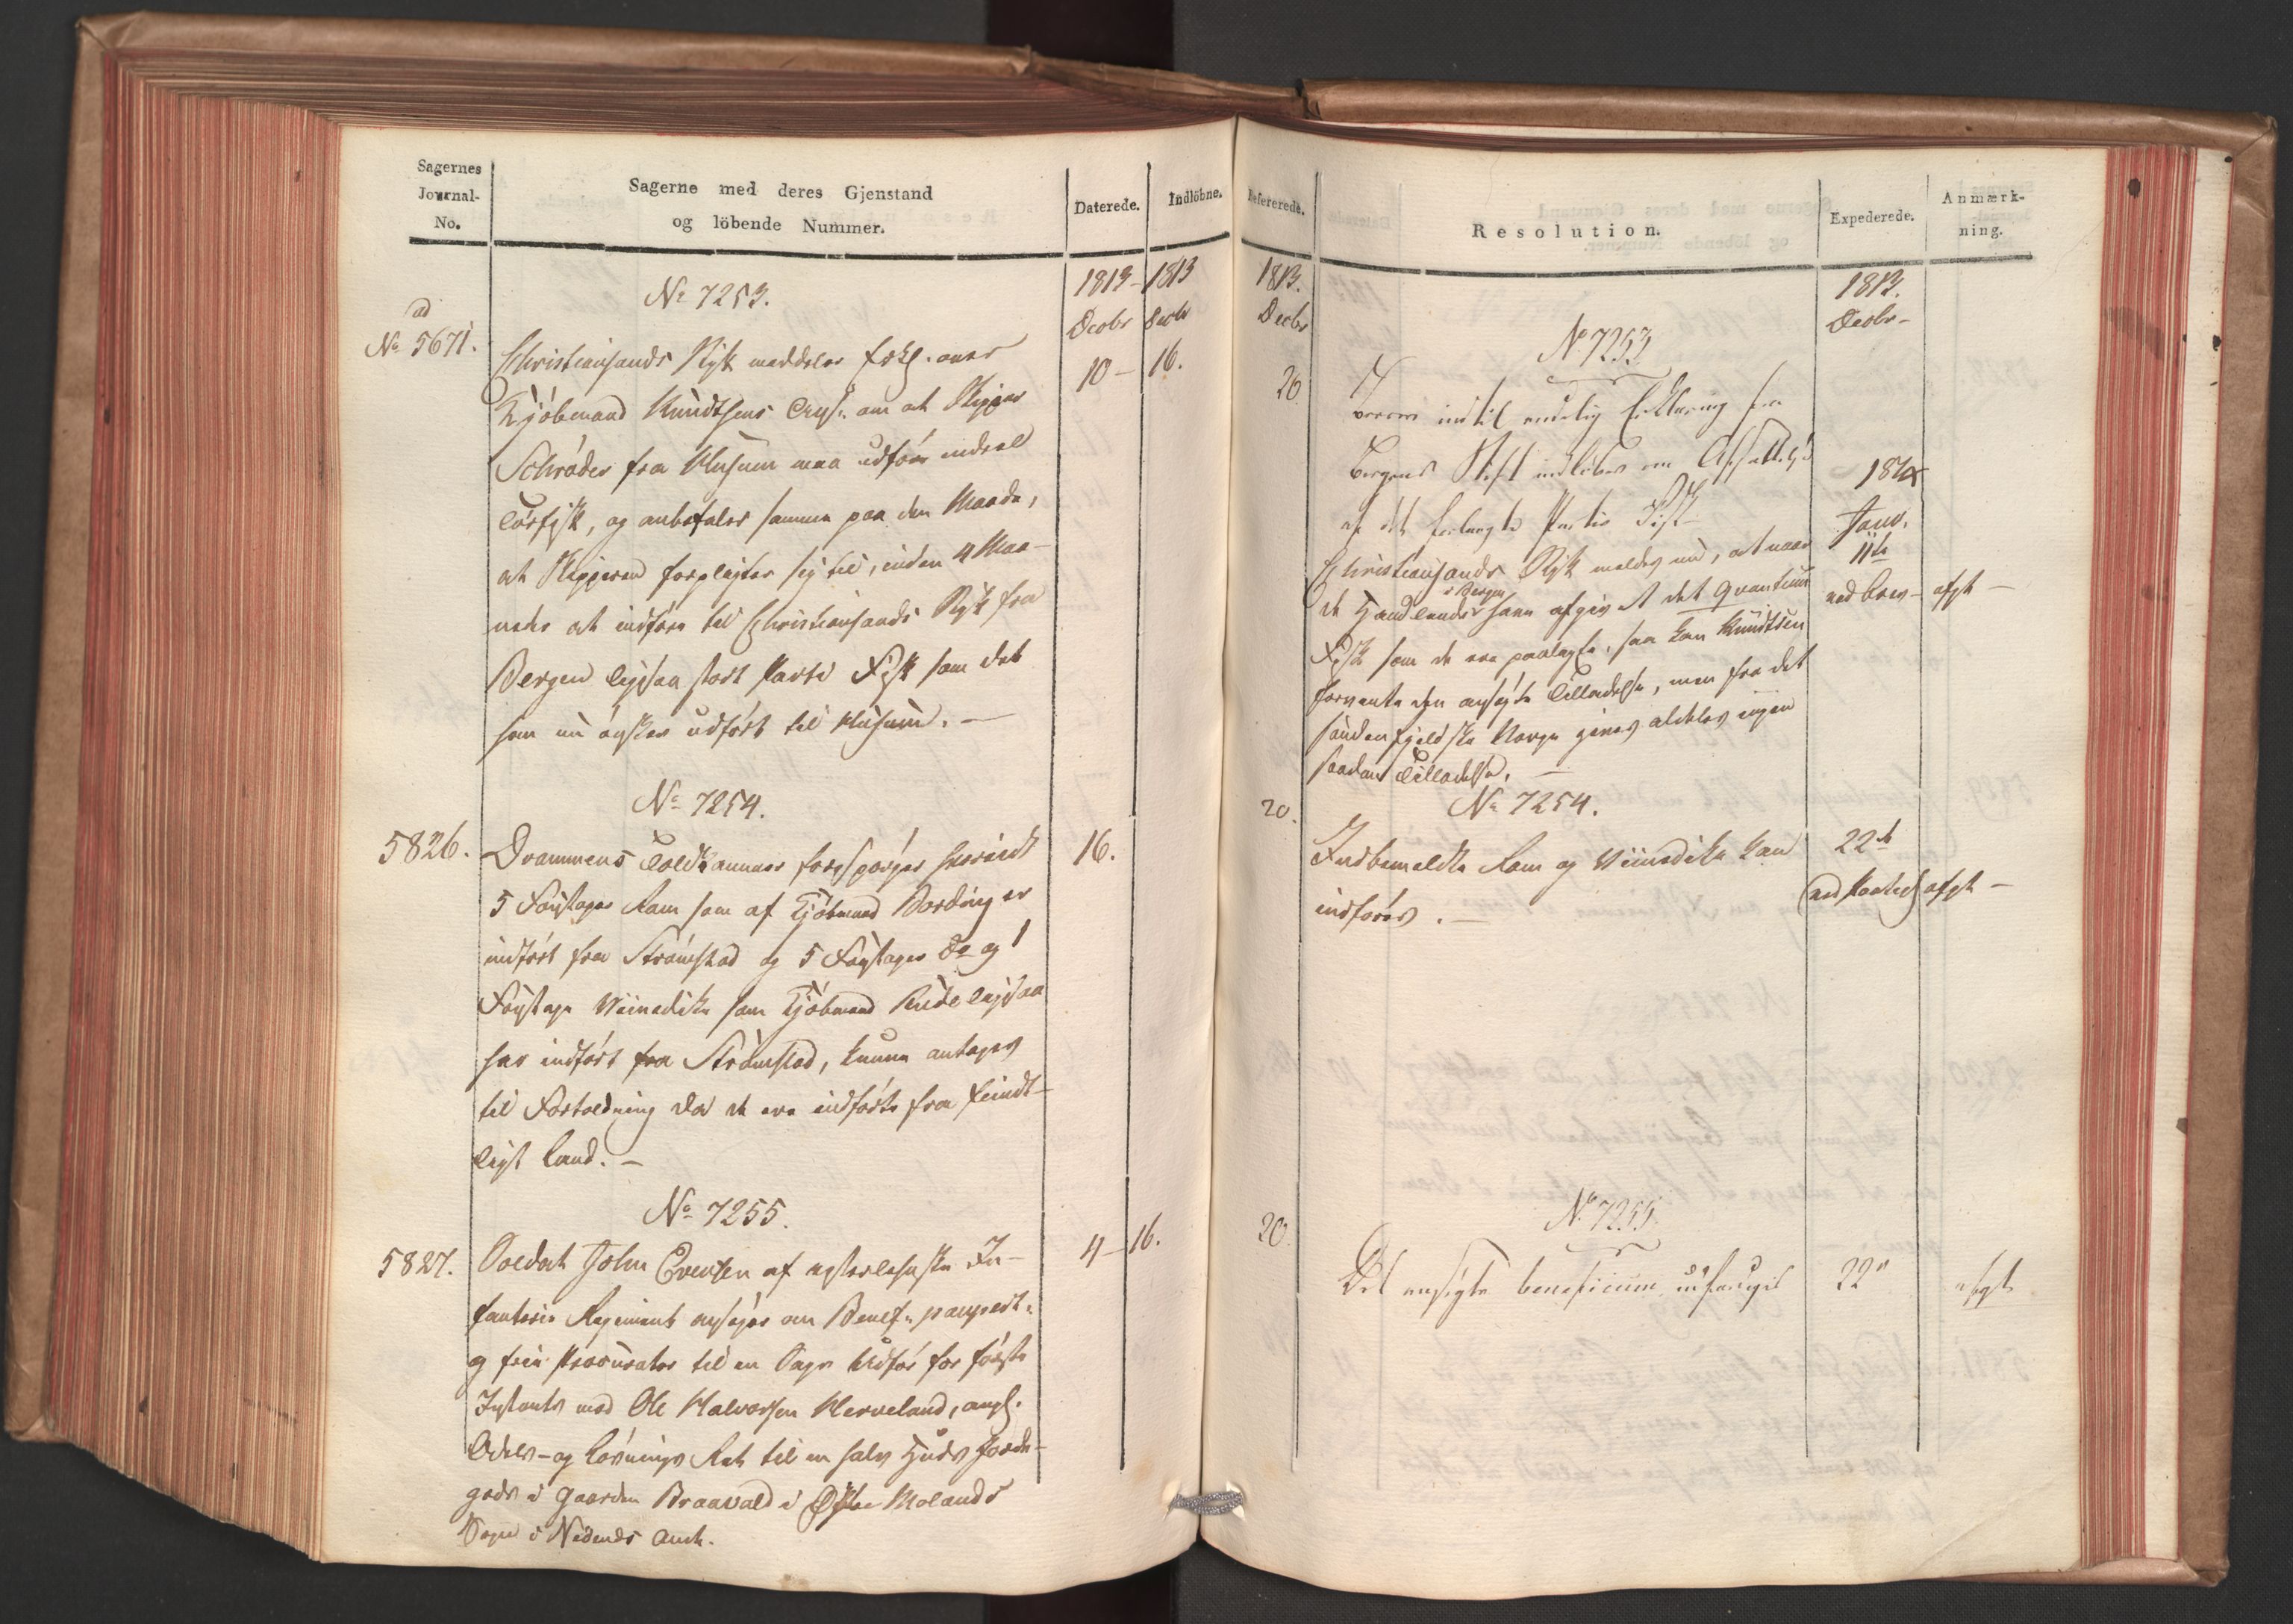 Sagernes
Journal-
No.
Sagerne med deres Gjenstand
og löbende Nummer.
Daterede.
Indlöbne.
1813 - 1813
Decbr Decbr
No 7253.
ad
No 5671.
10 - 16.
Christiansands Stift meddeler Erkl. over
Kjöbmand Knudtsens Ans. om at Skipper
Schröder fra Husum maa udföre endeel
Törfisk, og anbefaler samme paa den Maade,
at Skipperen forpligter sig til, inden 4 Maa-
neder at indföre til Christiansands Stift fra
Bergen ligesaa stort Partie Fisk som det
som nu önskes udfört til Husum. -
No 7254.
5826.
16.
Drammens Toldkammer forespörger hvorvidt
5 Fustager Rom som af Kjöbmand Bording er
indfört fra Strömstad og 5 Fustager do og 1
Fustage Viinedike som Kjöbmand ligesaa
har indfört fra Strömstad, kunne antages
til Fortoldning da de ere indförte fra fiendt-
ligt Land. -
No 7255.
5827.
4 - 16.
Soldat John Evensen af Infanterie Regiment ansöger om Benef. paupert.
og frie Procurator til en Sags Udför for förste
Instants mod Ole Halvorsen Herveland, ang.
Odels- og Lösnings Ret til en halv Huds Jorde-
gods i Gaarden Braavald i Östre Molands
Sogn i Nedenes Amt.
Refererede.
Resolution.
Expederede.
Anmærk-
ning.
1813.
Decbr
1813.
Decbr -
No 7253
20
indtil endelig Erklæring fra
Bergens Stift indlöber om
af det forlangte Partie Fisk
Christiansands Stift meldes nu, at naar
i Bergen
de Handlende have afgivet det Quantum
Fisk som de ere paalagte, saa kan Knudtsen
forvente den ansögte Tilladelse, men fra det
söndenfjeldske Norge gives aldeles ingen
saadan Tilladelse. -
1814
Janv.
11te
ved Brev - afgt -
20.
No 7254.
Indbemeldte Rom og Viinedike kan
indföres. -
22de
afgt -
No 7255
20.
Det ansögte beneficium
22de
afgt